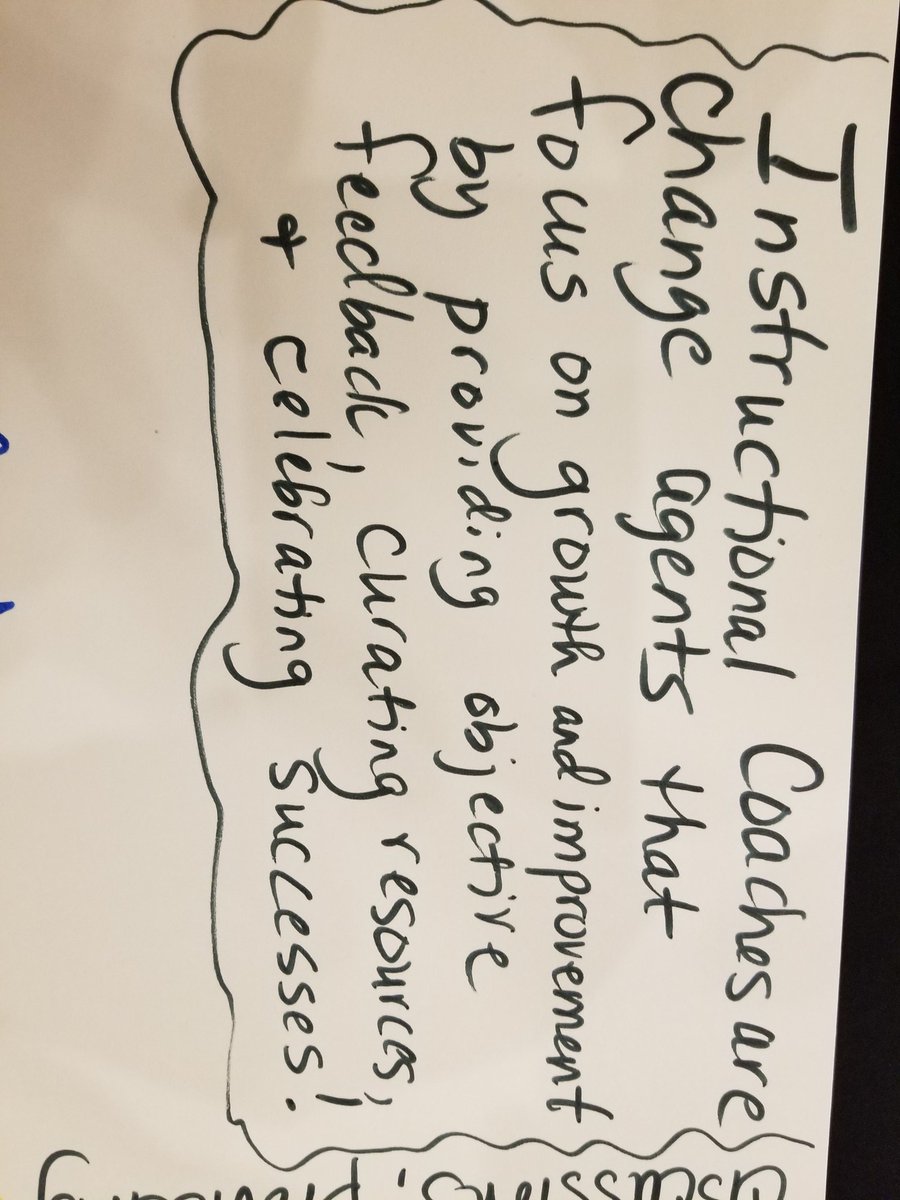 Instructional Coaches are
change agents that
focus on growth and improvement
by providing objective
feedback, curating resources,
+ celebrating successes!